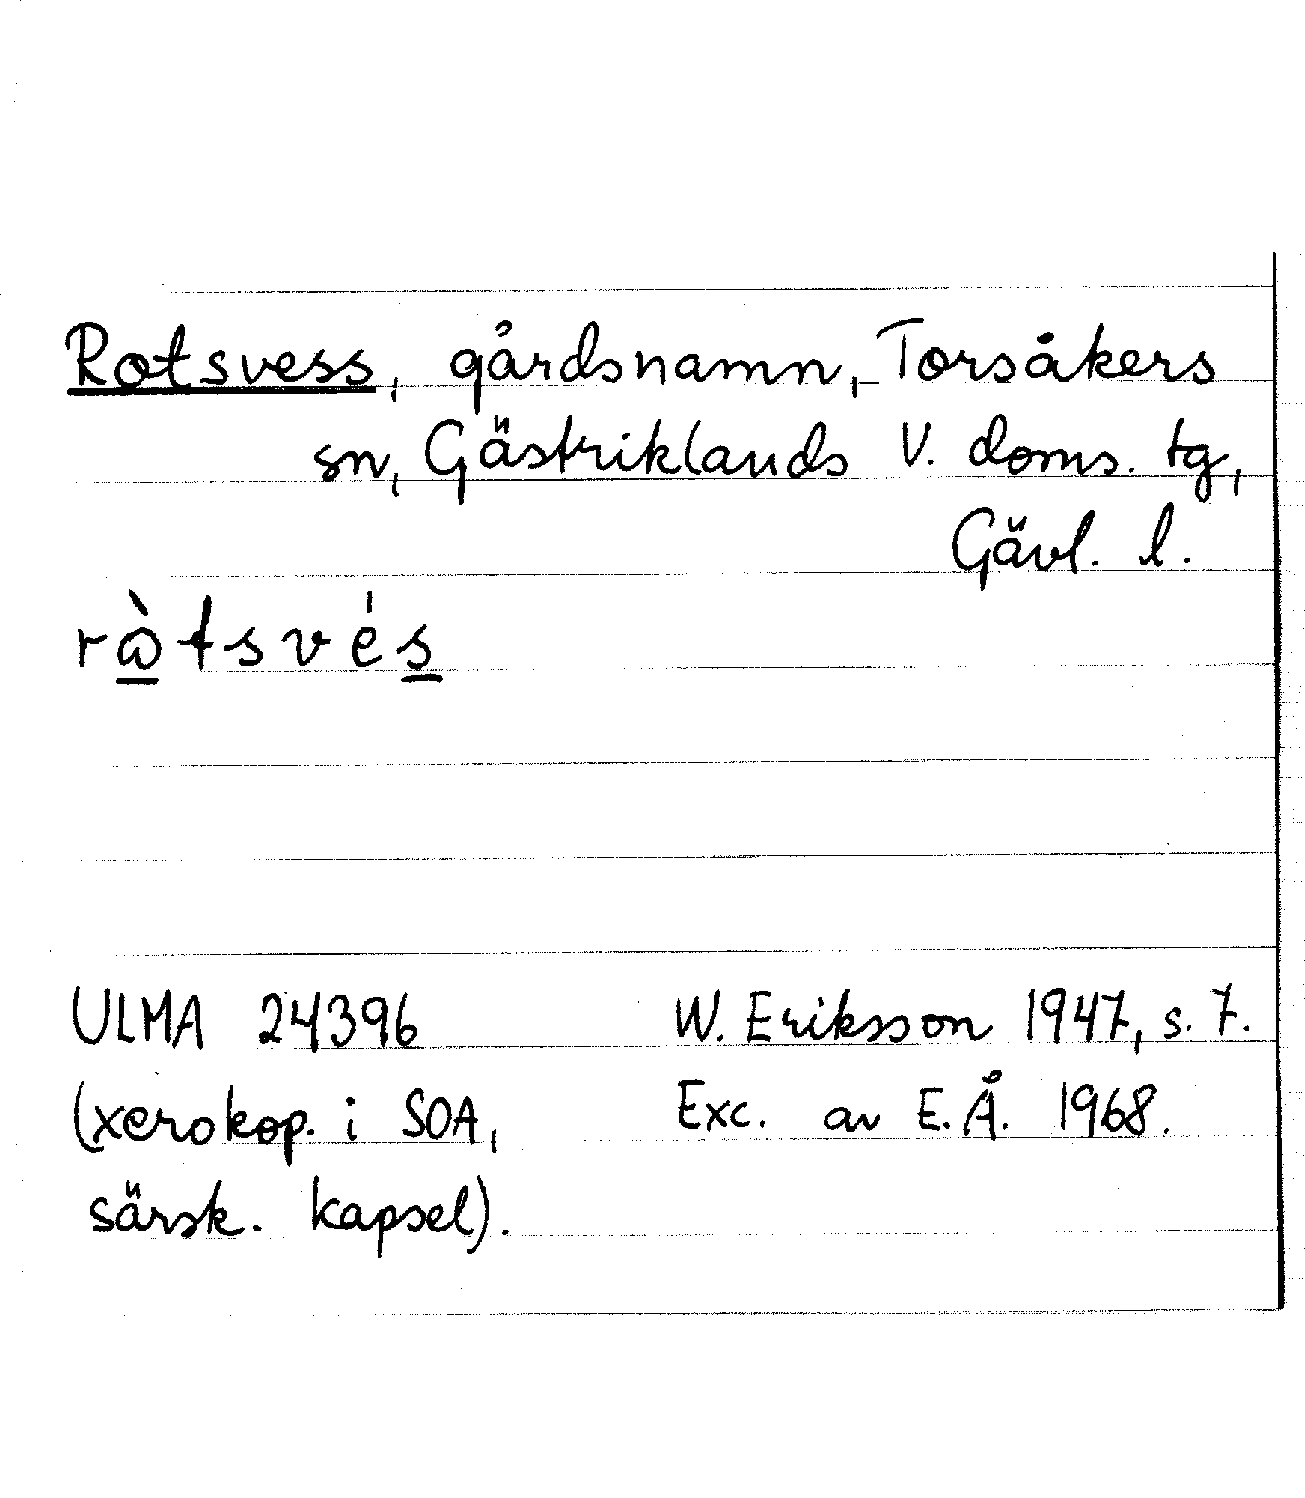 Rotsvess, gårdsnamn, Torsåkers
sn, Gästriklands V. doms. tg,
Gävl. l.
rὼtsvés
ULMA 24396
(xerokop. i SOA,
särsk. kapsel).
W. Eriksson 1947, s. 7.
Exc. av E.Å. 1968.